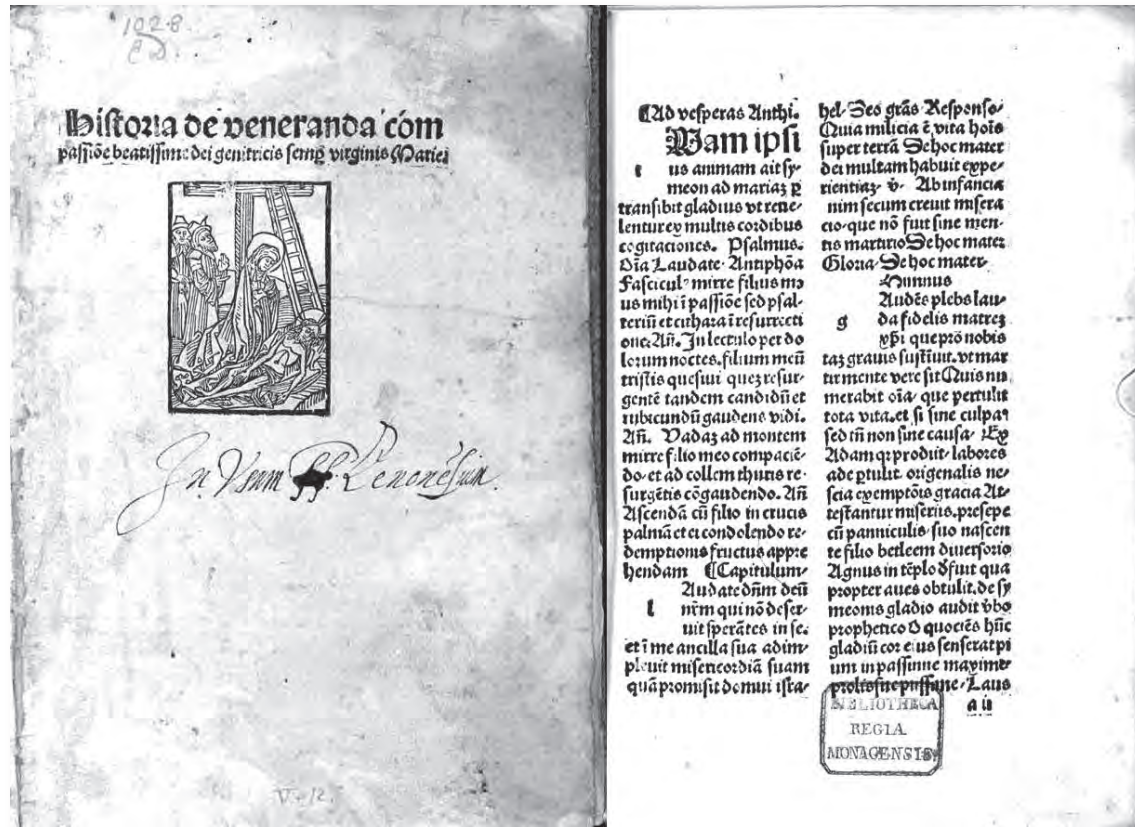 1028
Historia de veneranda cōm
passiōe beatissime dei genitricis semꝑ virginis Marie
In Usum
V+12.
¶Ad vesperas Anthi.
Wam ipsi
t us animam ait sy-
meon ad mariaꝫ ꝑ
transibit gladius vt reue-
lentur ex multis cordibus
cogitaciones. Psalmus.
Oīa Laudate. Antiphōa
Fascicul' mirre filius me
us mihi ī passiōe sed psal-
teriū et cithara ī resurrecti
one. Añ. In lectulo per do
lorum noctes. filium meū
tristis quesiui queꝫ resur-
gentē tandem candidū et
rubicundū gaudens vidi.
Añ. Vadaꝫ ad montem
mirre filio meo compaciē-
do. et ad collem thuris re-
surgētis cōgaudendo. Añ
Ascendā cū filio in crucis
palmā et ei condolendo re-
demptionis fructus appre
hendam ¶Capitulum.
Audate dn̄m deū
l nr̄m qui nō deser-
uit sperātes in se.
et ī me ancilla sua adim-
pleuit misericordiā suam
quā promisit domui isra-
hel. Deo grās. Responso.
Quia milicia ē vita hoīs
super terrā. De hoc mater
dei multam habuit expe-
rientiaꝫ. v. Ab infancia
nim secum creuit misera
cio. que nō fuit sine men-
tis martirio. De hoc mater
Gloria. De hoc mater.
Himnus
Audēs plebs lau-
g da fidelis matreꝫ
xp̄i que prō nobis
taꝫ grauis sustīuit. vt mar
tir mente vere sit Quis nu
merabit oīa. que pertulit
tota vita. et si sine culpa
sed tn̄ non sine causa. Ex
Adam qꝛ prodiit. labores
ade ꝑtulit. origenalis ne-
scia exemptōis gracia At-
testantur miseriis. presepe
cū panniculis. suo nascen
te filio betleem diuersorio
Agnus in tēplo d̄fuit qua
propter aues obtulit. de sy
meonis gladio audit v̄bo
prophetico O quociēs hūc
gladiū cor eius senserat pi
um in passione maxime
prolis sue Laus
a ii
BIBLIOTHECA
REGIA
MONACENSIS